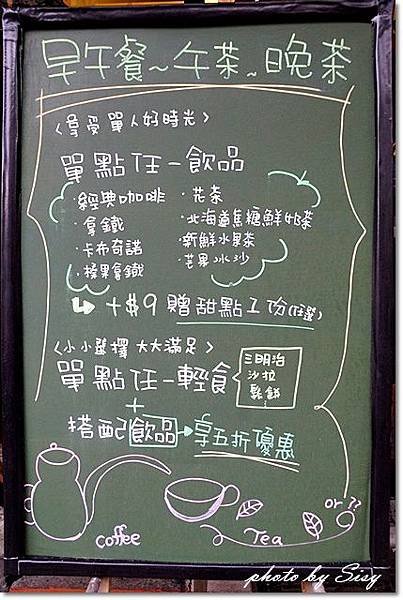 早午餐~午茶~晚茶
<享受單人好時光>
單點任一飲品
經典咖啡
·拿鐵
·卡布奇諾
·榛果拿鐵
·花茶
·北海道焦糖鮮奶茶
·新鮮水果茶
·芒果冰沙
+$9 贈甜點1份(任選)
<小小選擇 大大滿足>
單點任一輕食
三明治
沙拉
鬆餅
+
搭配飲品→享五折優惠
coffee
Tea
or ??
photo by Sisy